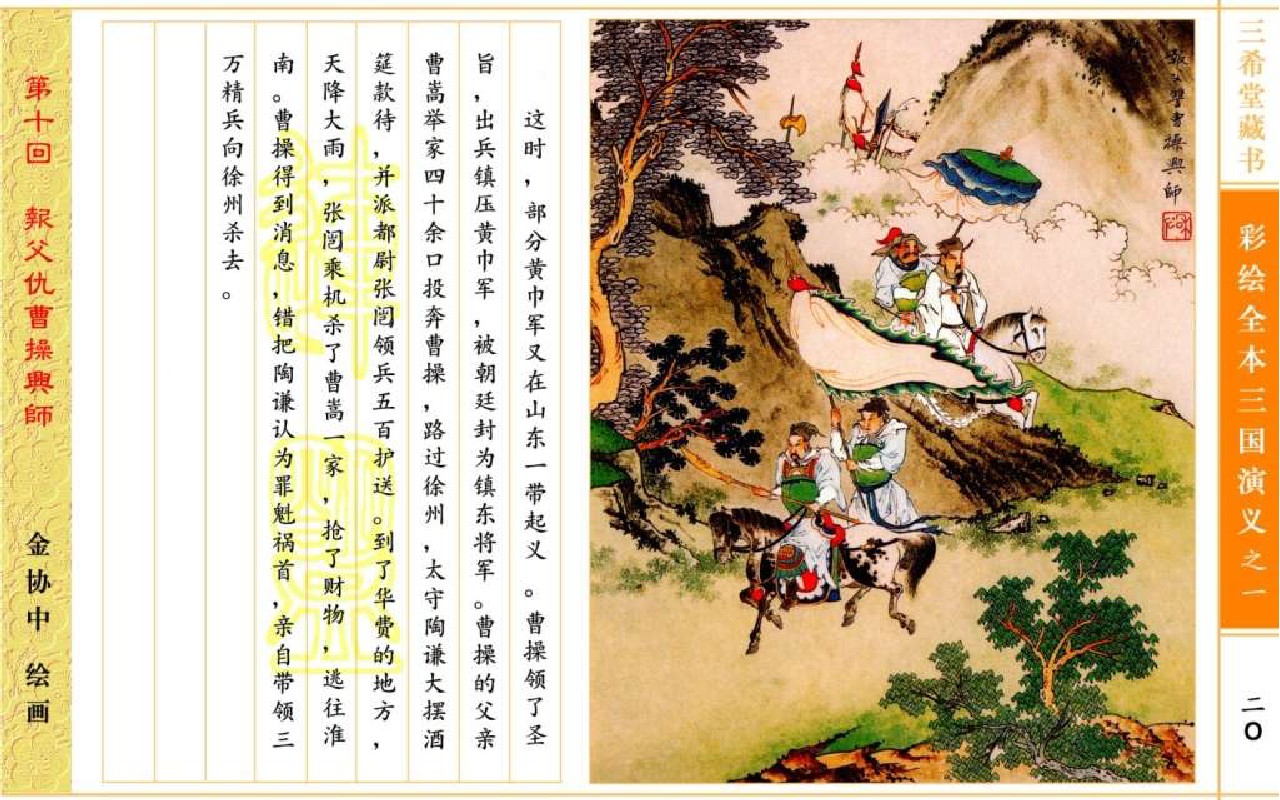 三希堂藏书
彩绘全本三国演义之一
二〇
報父讐曹操興師
这时，部分黄巾军又在山东一带起义。曹操领了圣
旨，出兵镇压黄巾军，被朝廷封为镇东将军。曹操的父亲
曹嵩举家四十余口投奔曹操，路过徐州，太守陶谦大摆酒
筵款待，并派都尉张闿领兵五百护送。到了华费的地方，
天降大雨，张闿乘机杀了曹嵩一家，抢了财物，逃往淮
南。曹操得到消息，错把陶谦认为罪魁祸首，亲自带领三
万精兵向徐州杀去。
第十回 報父仇曹操興師
金协中 绘画